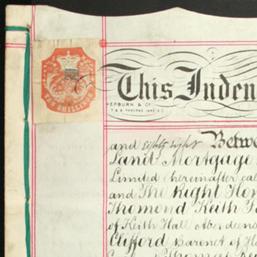 This Inden
HEPBURN & Co
and eighty eight Betwe
Land Mortgage
Limited (hereinafter cal
and The Right Hon
Thomond Keith F
of Keith Hall Aberdeens
Clifford Baronet of